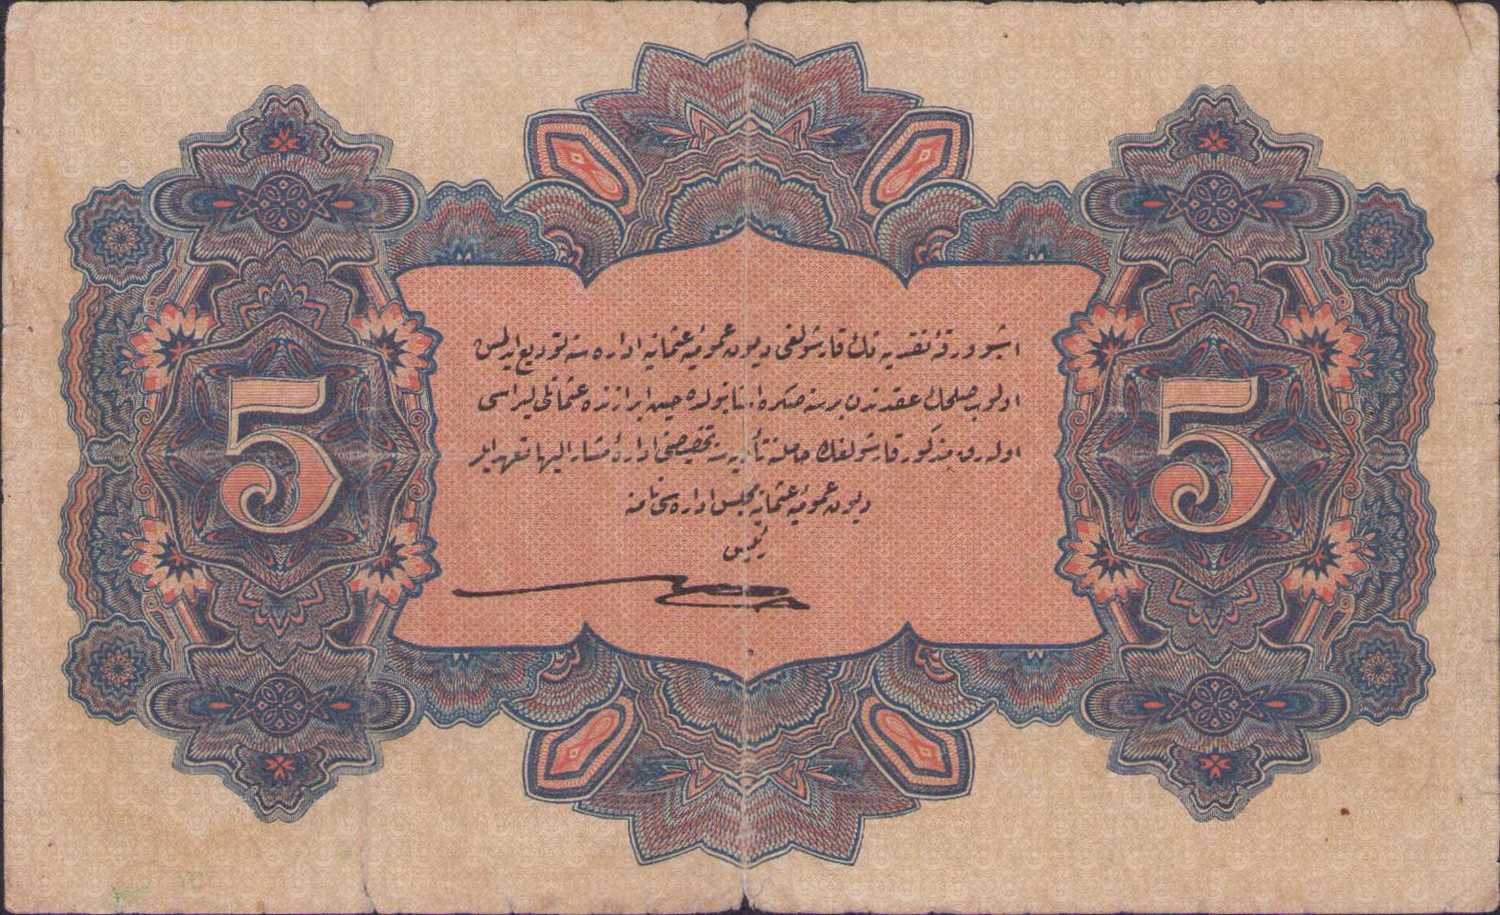 اشبو ورقهٔ نقدیه نك قارشولغی دیون عمومیهٔ عثمانیه اداره سنه تودیع ایدلمش
اولوب صلحك عقدندن بر سنه صكره استانبولده حین ابرازنده عثمانلی لیراسی
اوله رق مذكور قارشولغك حاملنه تأدیه سنه تخصیصنی ادارهٔ مشار الیها تعهد ایلر
دیون عمومیهٔ عثمانیه مجلس اداره سی نامنه
رئیس
5
5